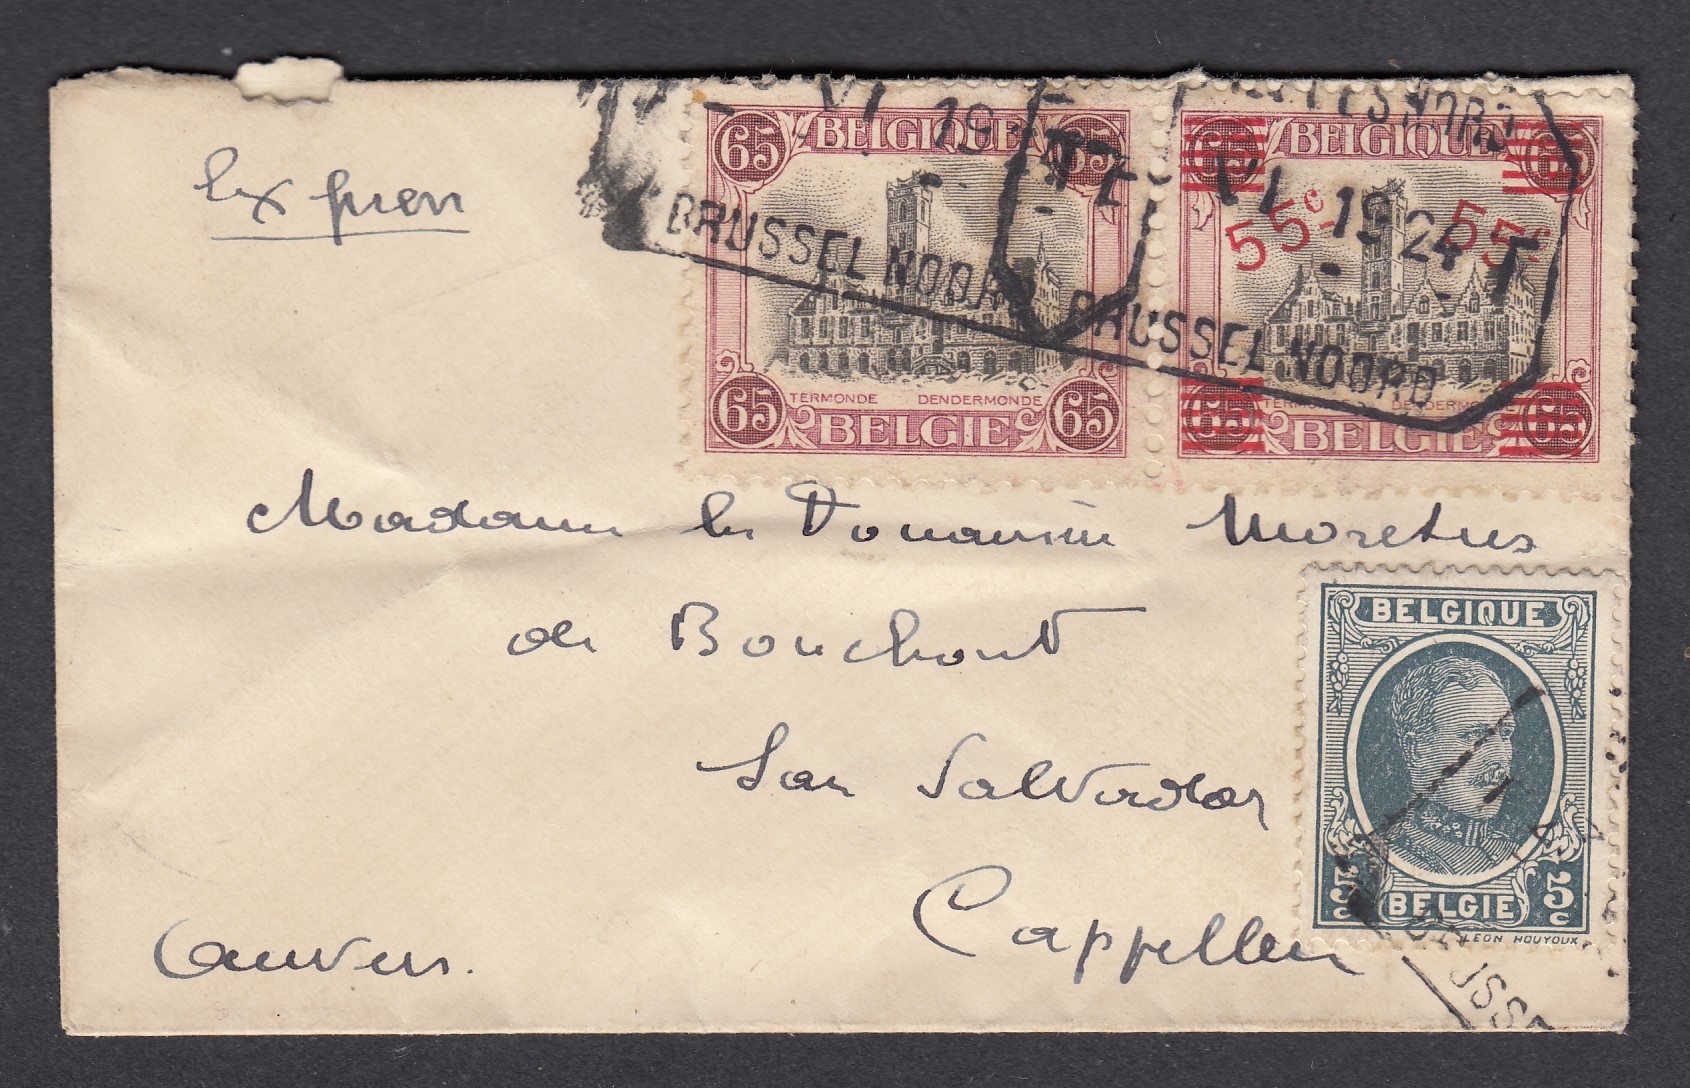 Exprès
BELGIQUE
65 65
TERMONDE DENDERMONDE
65 65
BELGIE
BELGIQUE
65 65
55c 55c
TERMONDE DENDERMONDE
65 65
BELGIE
VI 19
BRUSSEL NOORD
VI 1924
BRUSSEL NOORD
Madame la Douairière Moretus
de Bouchout
San Salvador
Cappellen
Anvers.
BELGIQUE
5c 5c
BELGIE
LEON HOUYOUX